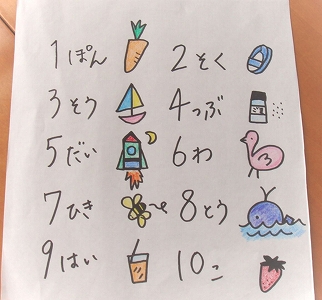 1ぽん 2そく
3そう 4つぶ
5だい 6わ
7ひき 8とう
9はい 10こ